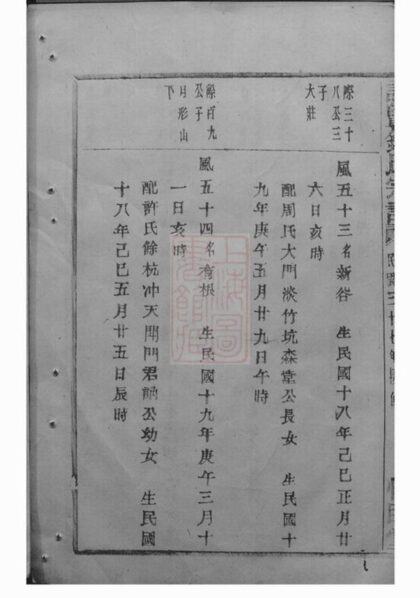 際三十
八公三
子
大莊
風五十三名新谷　生民國十八年己巳正月廿
六日亥時
配周氏大門淡竹坑森堂公長女　生民國十
九年庚午五月廿九日午時
際百九
公子
月形山
下
風五十四名有根　生民國十九年庚午三月十
一日亥時
配許氏餘杭冲天開門君 公幼女　生民國
十八年己巳五月廿五日辰時
上海圖書館藏